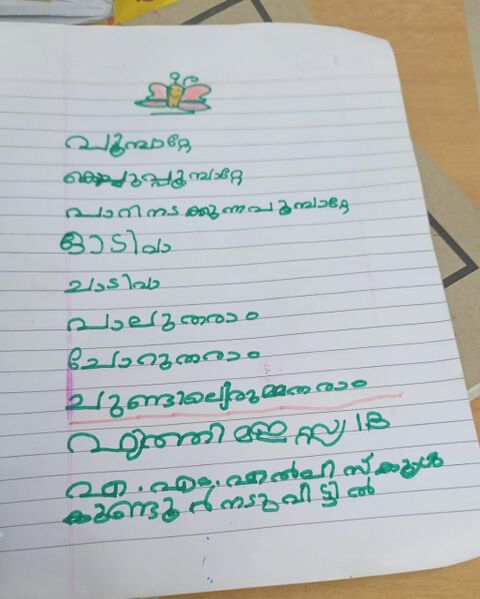 പൂമ്പാറ്റേ
കൊച്ചുപൂമ്പാറ്റേ
പാറിനടക്കുന്നപൂമ്പാറ്റേ
ഓടിവാ
ചാടിവാ
പാലുതരാം
ചോറുതരാം
ചുണ്ടിലൊരുമ്മതരാം
1B
എ.എം.എൽപി സ്കൂൾ
കുണ്ടൂർനടുവീട്ടിൽ